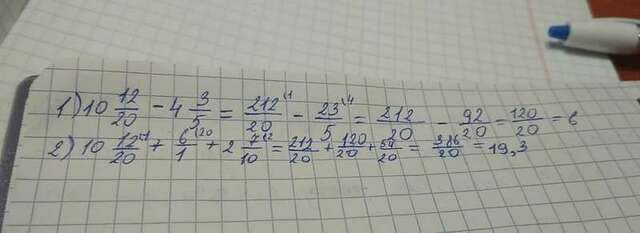 1) 10 12/20 - 4 3/5 = 212\1/20 - 23\4/5 = 212/20 - 92/20 = 120/20 = 6
2) 10 12\1/20 + 6\20/1 + 2 7\2/10 = 212/20 + 120/20 + 54/20 = 386/20 = 19,3